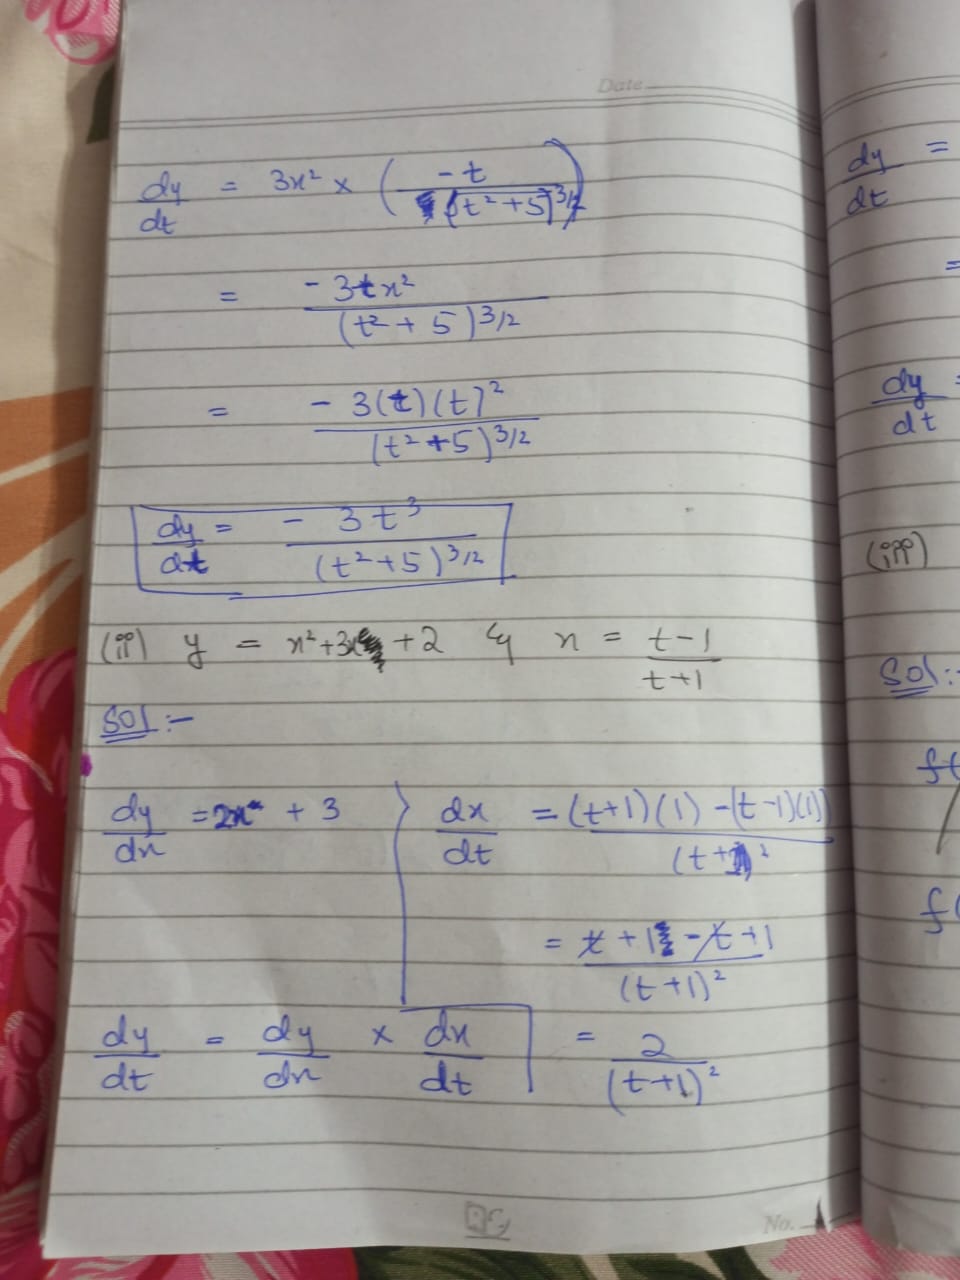 Date
dy/dt = 3x² × (-t/(t²+5)^3/2)
= -3tx²/(t²+5)^3/2
= -3(t)(t)²/(t²+5)^3/2
dy/dt = -3t³/(t²+5)^3/2
(ii) y = x²+3x+2 & x = t-1/t+1
Sol:-
dy/dx = 2x + 3
dx/dt = (t+1)(1)-(t-1)(1)/(t+1)²
= t+1-t+1/(t+1)²
dy/dt = dy/dx × dx/dt
= 2/(t+1)²
No.
dy/dt =
=
dy/dt =
(iii)
Sol:-